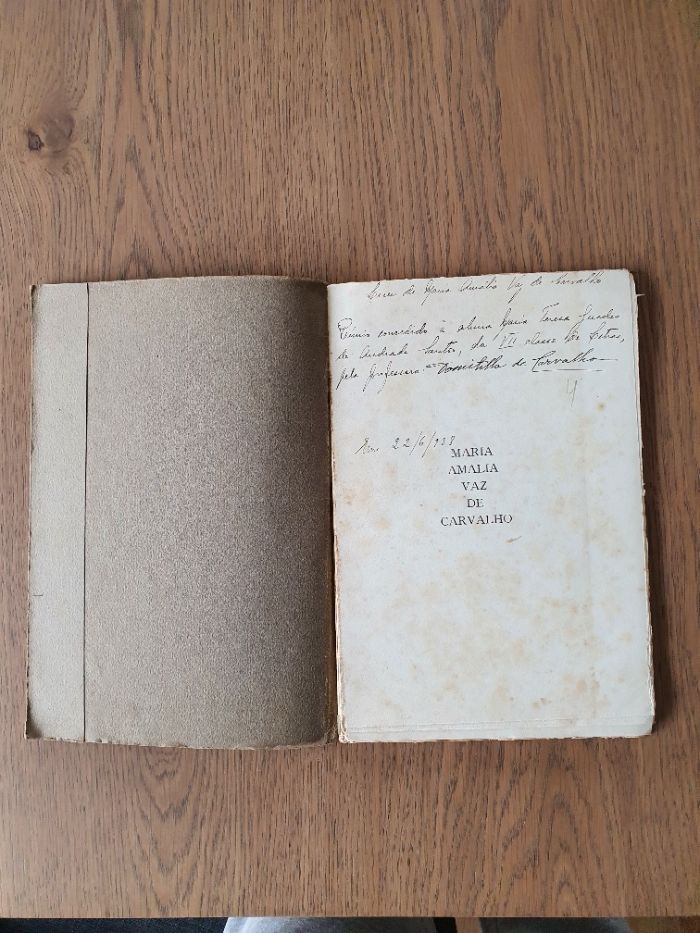 Liceu de Maria Amália Vaz de Carvalho
Prémio concedido à aluna Maria Teresa Guedes
de Andrade Santos, da VII classe de Letras,
pela professora Domitilla de Carvalho
4
22/6/938
MARIA
AMALIA
VAZ
DE
CARVALHO